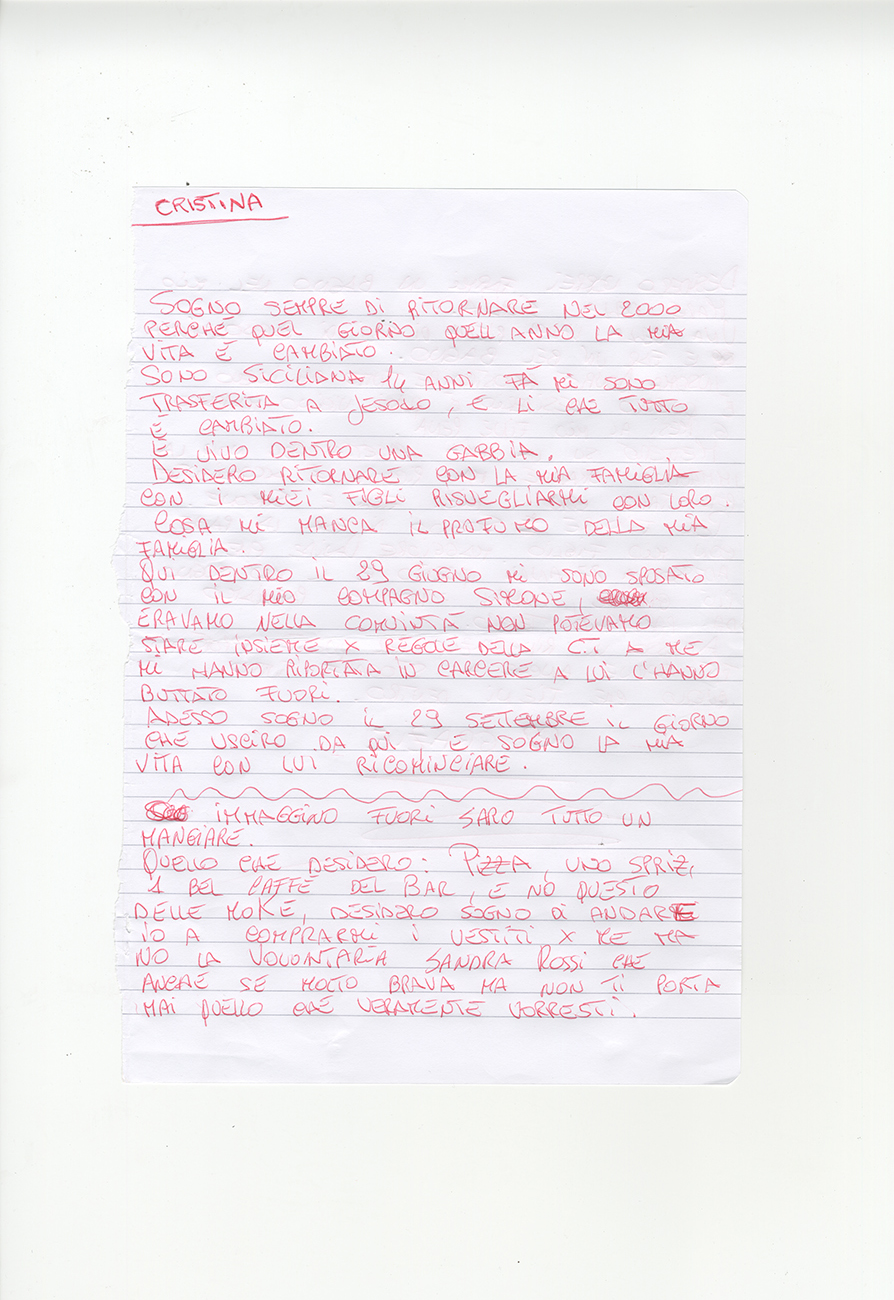 CRISTINA
SOGNO SEMPRE DI RITORNARE NEL 2000
PERCHÉ QUEL GIORNO QUELL ANNO LA MIA
VITA É CAMBIATO.
SONO SICILIANA 14 ANNI FÀ MI SONO
TRASFERITA A JESOLO, E LI CHE TUTTO
É CAMBIATO.
E VIVO DENTRO UNA GABBIA.
DESIDERO RITORNARE CON LA MIA FAMIGLIA
CON I MIEI FIGLI RISVEGLIARMI CON LORO.
COSA MI MANCA IL PROFUMO DELLA MIA
FAMIGLIA.
QUI DENTRO IL 29 GIUGNO MI SONO SPOSATO
CON IL MIO COMPAGNO SIMONE,
ERAVAMO NELLA COMUINTÁ NON POTEVAMO
STARE INSIEME X REGOLE DELLA C.T. A ME
MI HANNO RIPORTATA IN CARCERE A LUI L'HANNO
BUTTATO FUORI.
ADESSO SOGNO IL 29 SETTEMBRE IL GIORNO
CHE USCIRO DA QUI E SOGNO LA MIA
VITA CON LUI RICOMINCIARE.
IMMAGGINO FUORI SARO TUTTO UN
MANGIARE.
QUELLO CHE DESIDERO: PIZZA, UNO SPRIZ,
1 BEL CAFFÈ DEL BAR, E NO QUESTO
DELLE MOKE, DESIDERO SOGNO DI ANDARE
IO A COMPRARMI I VESTITI X ME MA
NO LA VOLONTARIA SANDRA ROSSI CHE
ANCHE SE MOLTO BRAVA MA NON TI PORTA
MAI QUELLO CHE VERAMENTE VORRESTI.